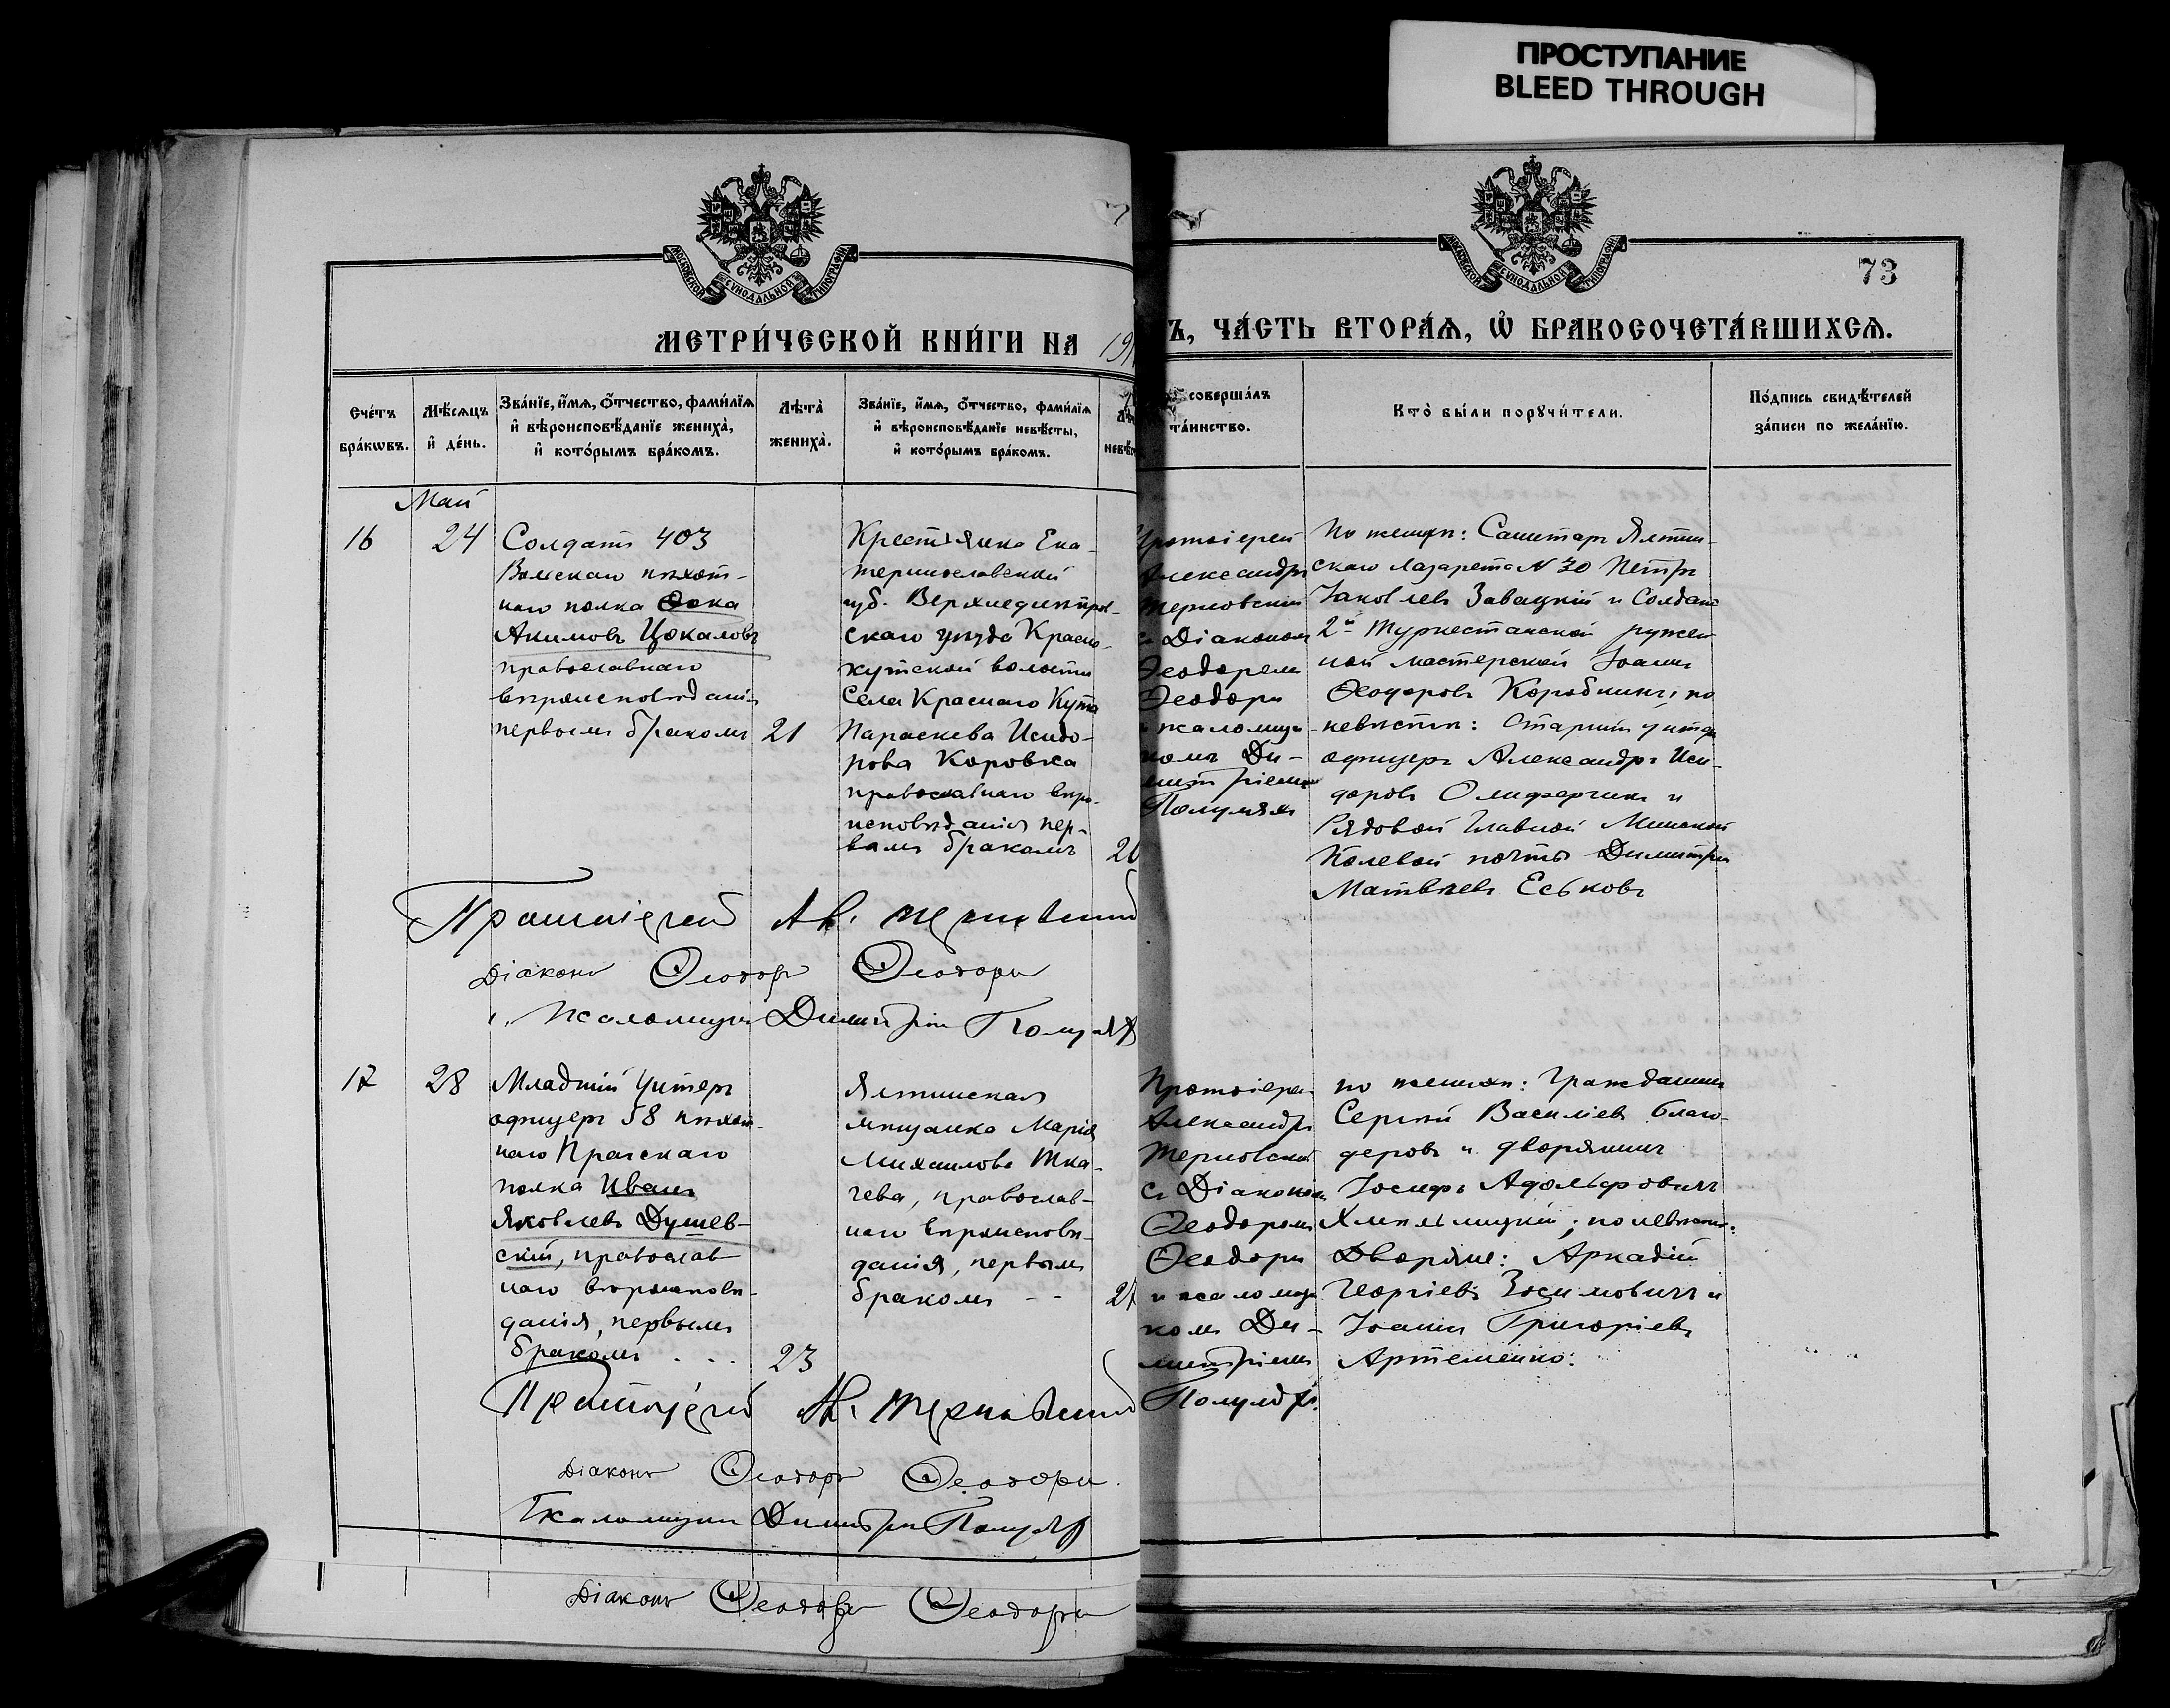 ПРОСТУПАНИЕ
BLEED THROUGH
МОСКОВСКОЙ СѴНОДАЛЬНОЙ ТИПОГРАФІИ
МОСКОВСКОЙ СѴНОДАЛЬНОЙ ТИПОГРАФІИ
73
МЕТРИ́ЧЕСКОЙ КНИ́ГИ НА 191
Ъ, ЧА́СТЬ ВТОРА́Ѧ, Ѽ БРАКОСОЧЕТА́ВШИХСѦ.
Счéтъ бра́кѡвъ.
Мѣ́сѧцъ и҆ дéнь.
Зва́нїе, и҆́мѧ, ѻ҆́тчество, фами́лїѧ
и҆ вѣроисповѣ́данїе жениха̀,
и҆ кото́рымъ бра́комъ.
Лѣта̀ жениха̀.
Зва́нїе, и҆́мѧ, ѻ҆́тчество, фами́лїѧ
и҆ вѣроисповѣ́данїе невѣ́сты,
и҆ кото́рымъ бра́комъ.
соверша́лъ
та́инство.
Кто̀ бы́ли порꙋчи́тели.
По́дпись свидѣ́телей
за́писи по жела́нїю.
Май
16
24
Солдатъ 403
Вольскаго пѣхот-
наго полка Ѳока
Акимовъ Цокаловъ
православнаго
вѣроисповѣданія
первымъ бракомъ
21
Крестьянка Ека-
теринославской
губ. Верхнеднѣпров-
скаго уѣзда Красно-
кутской волости
Села Краснаго Кута
Параскева Исидо-
рова Коровка
православнаго вѣро-
исповѣданія пер-
вымъ бракомъ
20
Протоіерей
Александръ
Терновскій
съ Діакономъ
Ѳеодоромъ
Ѳеодори
и псаломщи-
комъ Ди-
митріемъ
По женихѣ: Санитаръ Ялтин-
скаго Лазарета N 30 Петръ
Іаковлевъ Завацкій и Солдатъ
2й Туркестанской ружей
ной мастерской Іоаннъ
Ѳеодоровъ Коробкинъ; по
невѣстѣ: Старшій унтеръ
офицеръ Александръ Иси-
доровъ Олиферчикъ и
Рядовой Главной Минской
Полевой почты Димитрій
Матвѣевъ Еськовъ
Протоіерей Ал. Терновскій
Діаконъ Ѳеодоръ Ѳеодори
Псаломщикъ Димитрій
17
28
Младшій Унтеръ
офицеръ 58 пѣхот-
наго Прагскаго
полка Иванъ
Яковлевъ Душев-
скій, православ
наго вѣроисповѣ-
данія, первымъ
бракомъ . . .
23
Ялтинская
мѣщанка Марія
Михаилова Тка-
чева, православ-
наго вѣроисповѣ-
данія, первымъ
бракомъ - -
Протоіерей
Александръ
Терновскій
съ Діакономъ
Ѳеодоромъ
Ѳеодори
и псаломщи
комъ Ди-
митріемъ
по женихѣ: Гражданинъ
Сергѣй Василіевъ Благо-
деровъ и дворянинъ
Іосифъ Адольфовичъ
Хмѣльницкій; по невѣстѣ:
Дворяне: Аркадій
Георгіевъ Зосимовичъ и
Іоаннъ Григоріевъ
Артеменко.
Протоіерей Ал. Терновскій
Діаконъ Ѳеодоръ Ѳеодори.
Псаломщикъ Димитрій
Діаконъ Ѳеодоръ Ѳеодори